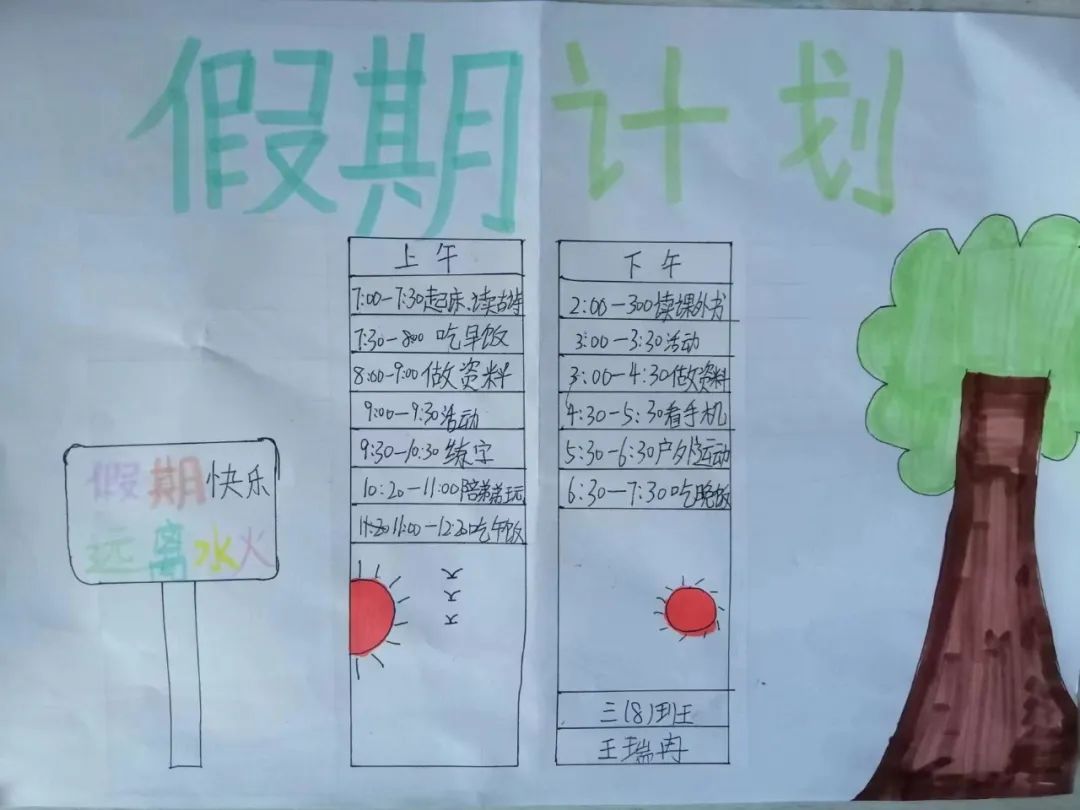 假期计划
上午
7:00-7:30起床、读古诗
7:30-8:00 吃早饭
8:00-9:00做资料
9:00-9:30活动
9:30-10:30 练字
10:20-11:00陪弟弟玩
11:00-12:20吃午饭
下午
2:00-300读课外书
3:00-3:30活动
3:00-4:30做资料
4:30-5:30看手机
5:30-6:30户外运动
6:30-7:30吃晚饭
三(8)班
王瑞冉
假期快乐
远离水火